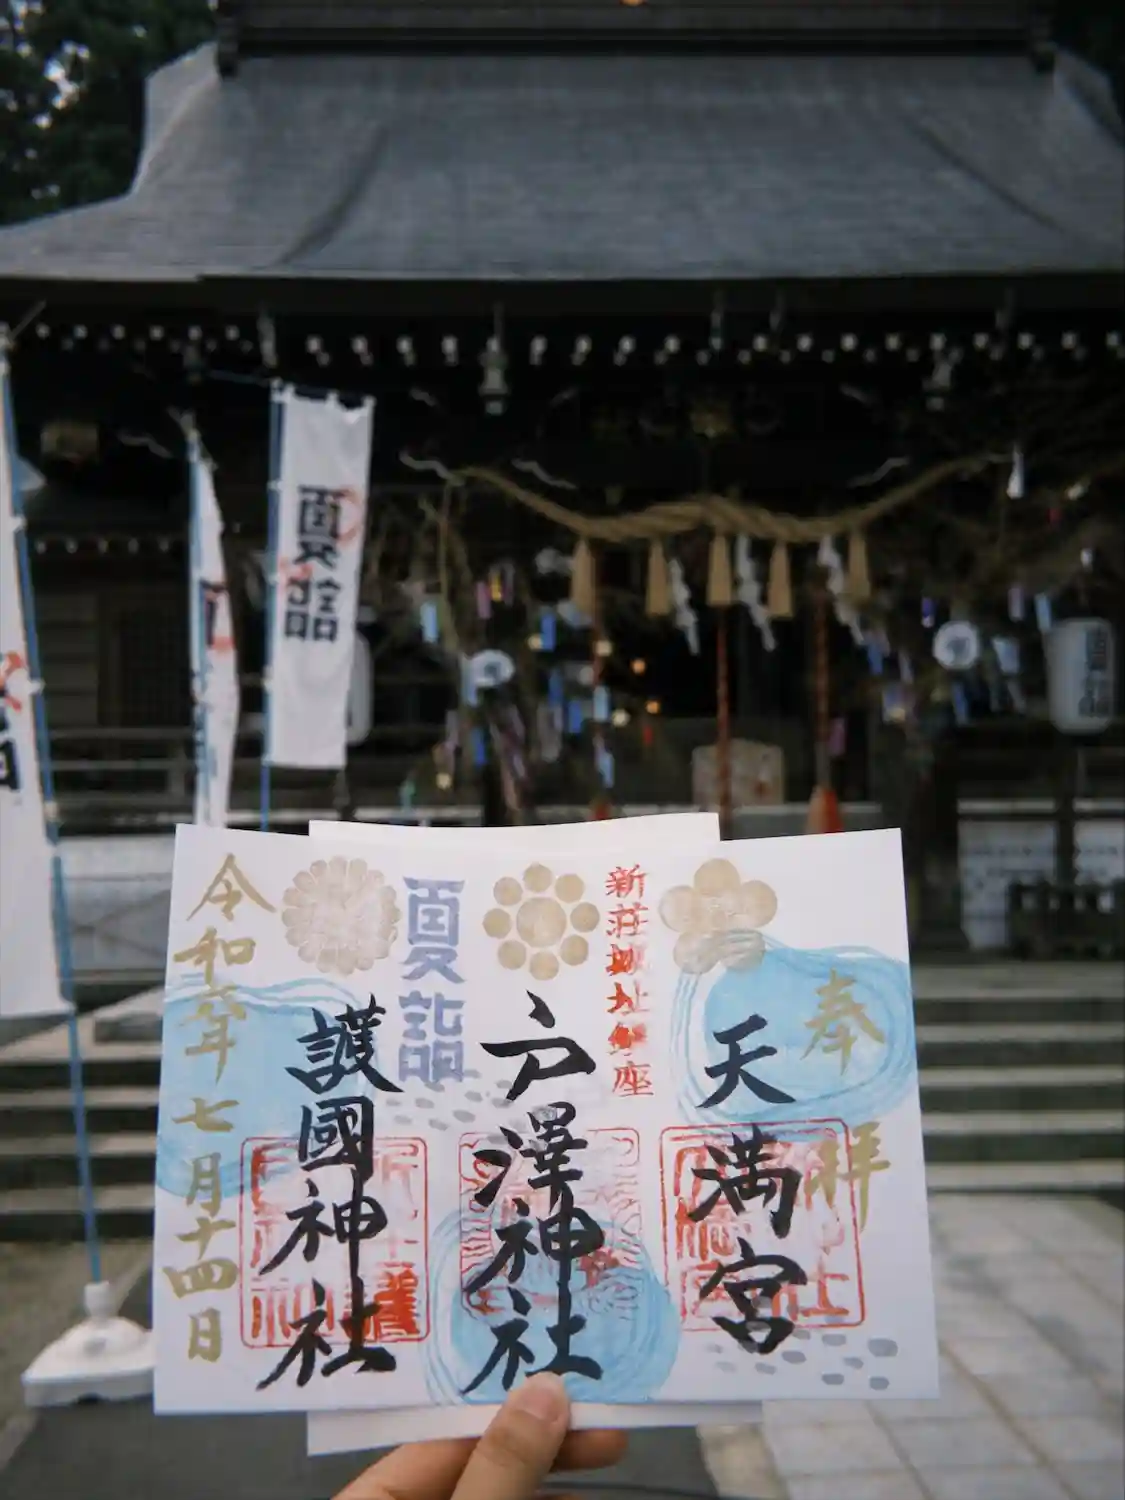 奉拝
天満宮
新荘城址鎮座
戸澤神社
夏詣
護國神社
令和六年七月十四日
夏詣